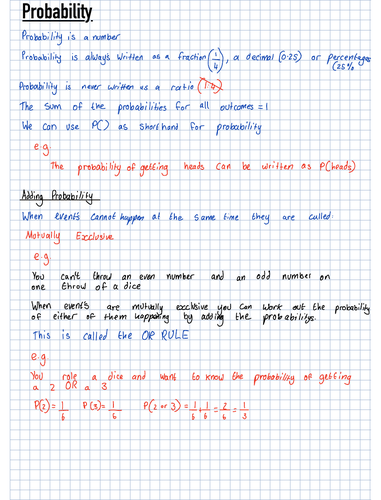 Probability
Probability is a number
Probability is always written as a fraction (1/4), a decimal (0.25) or percentages
(25%
Probability is never written as a ratio (1:4)
The sum of the probabilities for all outcomes = 1
We can use P() as shorthand for probability
e.g
The probability of getting heads can be written as P(heads)
Adding Probability
When events cannot happen at the same time they are called:
Mutually Exclusive
e.g
You can't throw an even number and an odd number on
one throw of a dice
When events are mutually exclusive you can work out the probability
of either of them happening by adding the probabilitys.
This is called the OR RULE
e.g
You role a dice and want to know the probability of getting
a 2 OR a 3
P(2) = 1/6 P(3) = 1/6 P(2 or 3) = 1/6 + 1/6 = 2/6 = 1/3